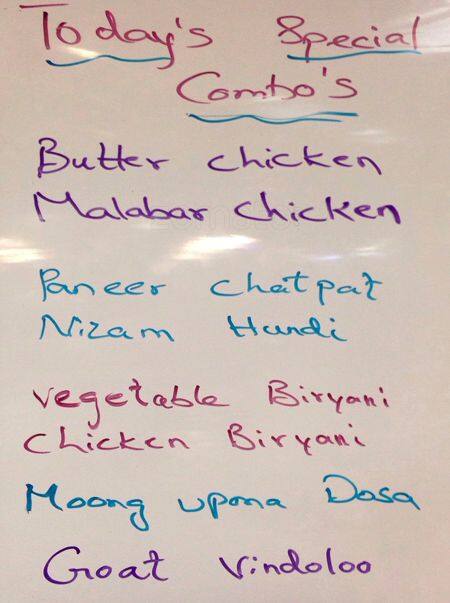 Today's Special
Combo's
Butter chicken
Malabar chicken
Paneer chatpat
Nizam Handi
vegetable Biryani
chicken Biryani
Moong upma Dosa
Goat vindoloo